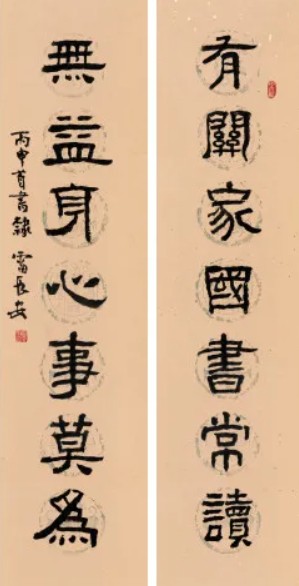 有關家國書常讀
無益身心事莫為
丙申首書隸 雷長安